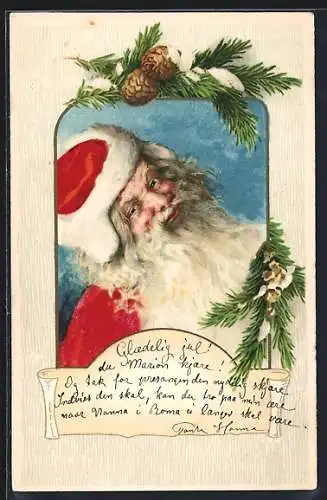 Glædelig jul!
du Marion kjære!
Og tak for presangen den nydelig skjære
Indvies den skal, kan du tro paa min ære
naar Nanna i Roma u længer skal være.
Tante Hanna